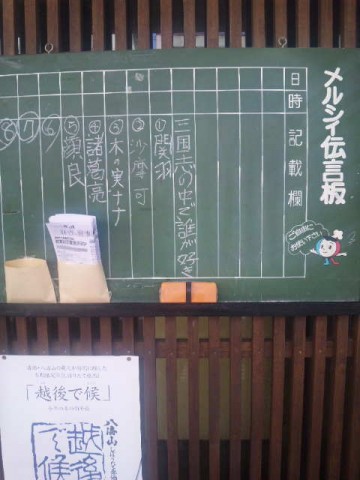 メルシィ伝言板
日時記載欄
ご自由に
お使い下さい
三国志の中で誰が好き
①関羽
②沙摩可
③木の実ナナ
④諸葛亮
⑤張良
⑥
⑦
⑧
「越後で候」
八海山
越後で候